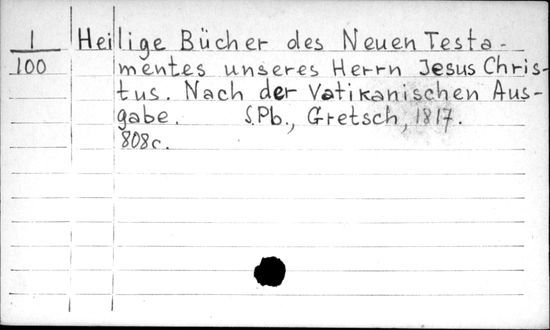 1 Heilige Bücher des Neuen Testa-
100 mentes unseres Herrn Jesus Chris-
tus. Nach der Vatikanischen Aus-
gabe. S.Pb., Gretsch, 1817.
808c.